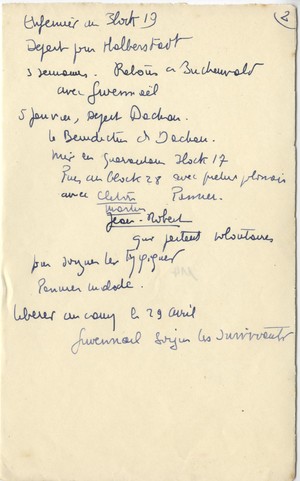 2
Infirmier au Block 19
Départ pour Halberstadt
3 semaines. Retour à Buchenwald
avec Gwennaël
5 Janvier, départ Dachau.
le Bénédictin de Dachau.
Mis en quarantaine Block 17
Puis au Block 28 avec prêtres polonais
avec Pannier.
Martin
Jean-Robert
qui partent volontaires
pour soigner les typhiques
Pannier malade.
libérés au camp le 29 avril
Gwennaël soigne les survivants